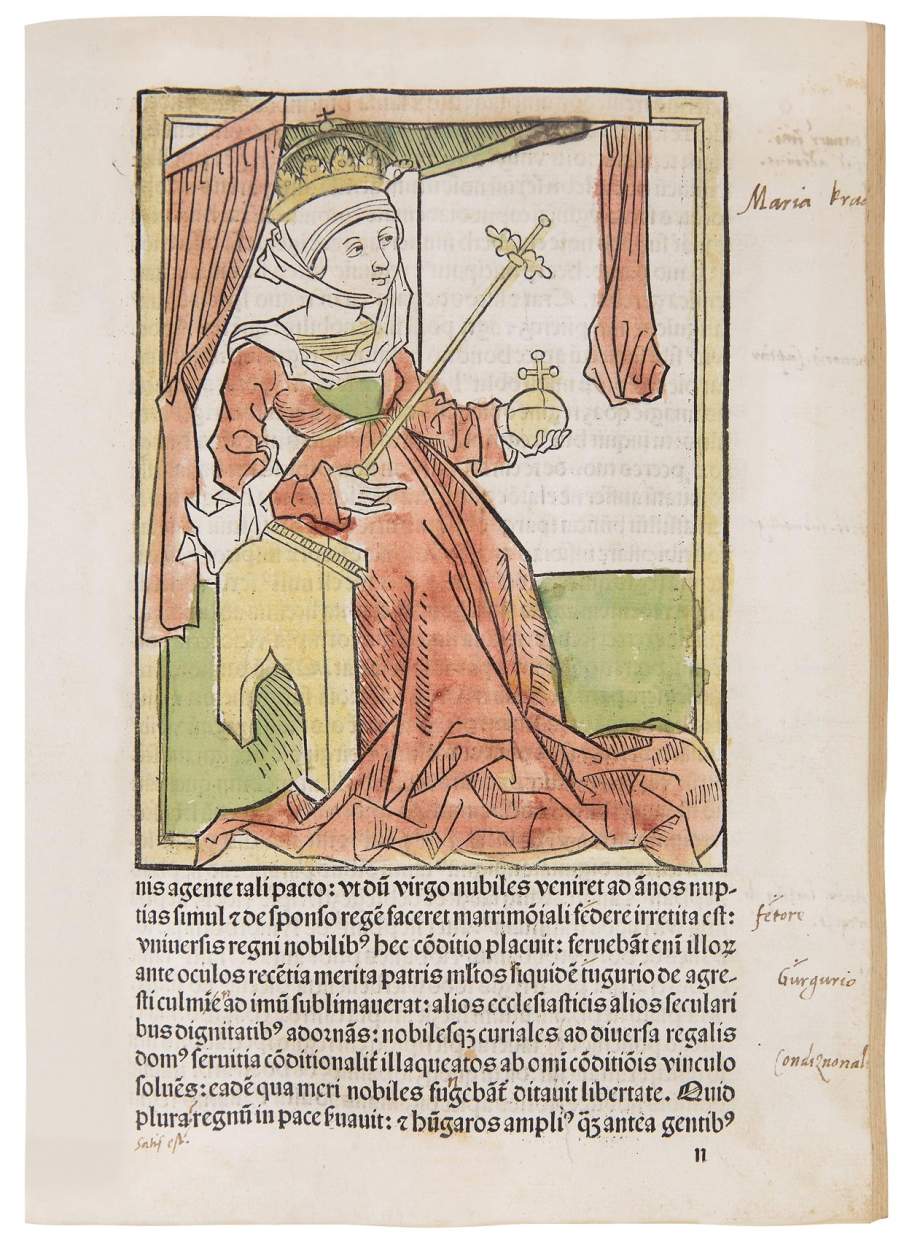 Maria
nis agente tali pacto: vt dū virgo nubiles veniret ad ānos nup-
tias simul ⁊ de sponso regē faceret matrimōiali federe irretita est:
vniuersis regni nobilibꝰ hec cōditio placuit: feruebāt enī illoꝝ
ante oculos recētia merita patris mltos siquidē tugurio de agre-
sti culmīe ad imū sublimauerat: alios ecclesiasticis alios seculari
bus dignitatibꝰ adornās: nobilesqꝫ curiales ad diuersa regalis
domꝰ seruitia cōditionalit̄ illaqueatos ab omī cōditiōis vinculo
soluēs: eadē qua meri nobiles fūgebāt̄ ditauit libertate. Quid
plura regnū in pace ẜuauit: ⁊ hūgaros ampliꝰ qꝫ̄ antea gentibꝰ
fetore
Gurgurio
satis est.
n